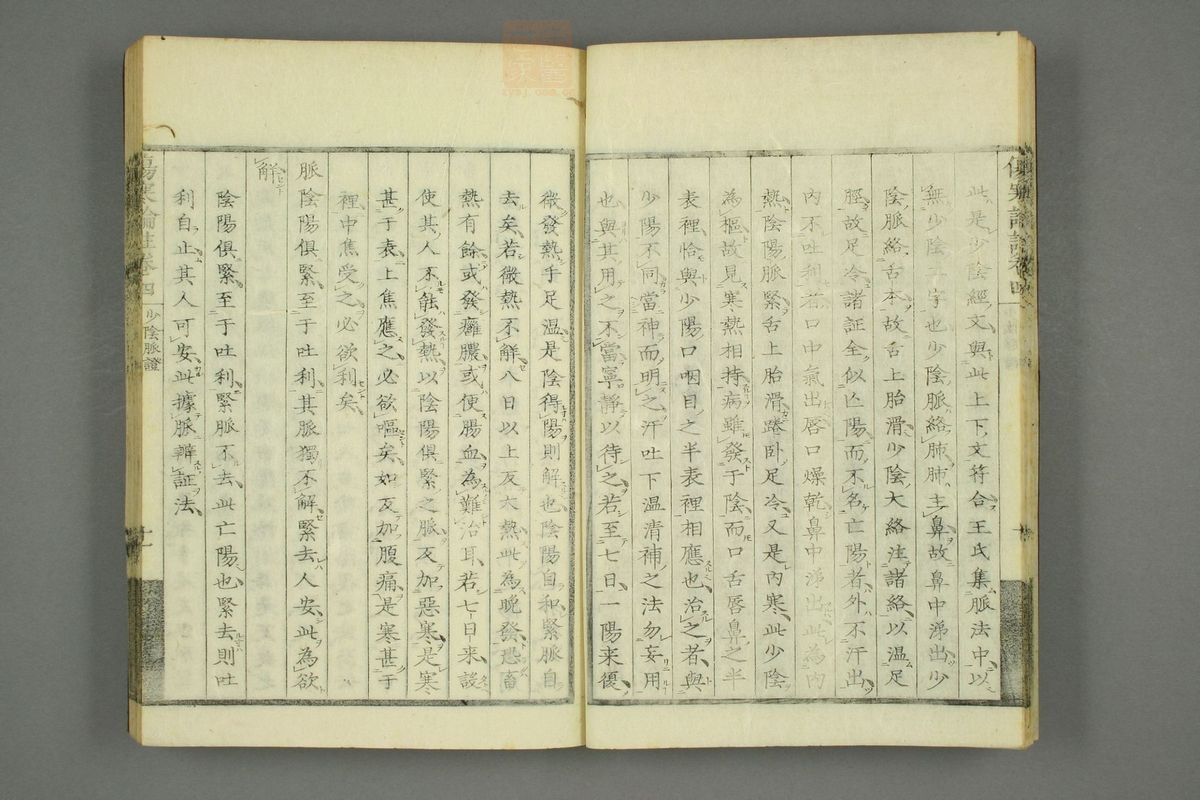 此是少陰經文與此上下文符合王氏集脈法中以
無少陰二字也少陰脈絡肺肺主鼻故鼻中涕出少
陰脈絡舌本故舌上胎滑少陰大絡注諸絡以温足
脛故足冷諸証全似亡陽而不名亡陽者外不汗出
内不吐利口中氣出唇口燥乾鼻中涕出此為内
熱陰陽脈緊舌上胎滑踡卧足冷又是内寒此少陰
為樞故見寒熱相持病雖發于陰而口舌唇鼻之半
表裡恰與少陽口咽目之半表裡相應也治之者與
少陽不同當神而明之汗吐下温清補之法勿妄用
也與其用之不當寧靜以待之若至七日一陽来復
微發熱手足温是陰得陽則解也陰陽自和緊脈自
去矣若微熱不解八日以上反大熱此為晚發恐畜
熱有餘或發癰膿或便腸血為難治耳若七日来設
使其人不能發熱以陰陽俱緊之脈反加惡寒是寒
甚于表上焦應之必欲嘔矣如反加腹痛是寒甚于
裡中焦受之必欲利矣
脈陰陽俱緊至于吐利其脈獨不解緊去人安此為欲
解
陰陽俱緊至于吐利緊脈不去此亡陽也緊去則吐
利自止其人可安此據脈辨証法
傷寒論註卷四
少陰脈證
十一
傷寒論註卷四
十